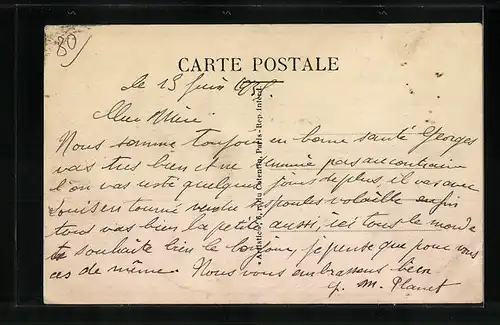 80
CARTE POSTALE
le 13 Juin
Nous somme toujour en bonne santé Georges
vas tres bien et ne s'ennuie pas au contraire
l'on vas resté quelques jours de plus, il vas avec
Louis en tourné vendre ses poules volaille enfin
tous vas bien la petite aussi, ici tous le monde
te souhaite bien le bonjour, je pense que pour vous
cas de même. Nous vous embrassons bien
M. Planet
Paris-Rep. Interd.